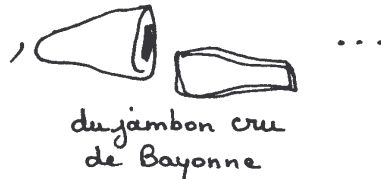 , ...
du jambon cru
de Bayonne